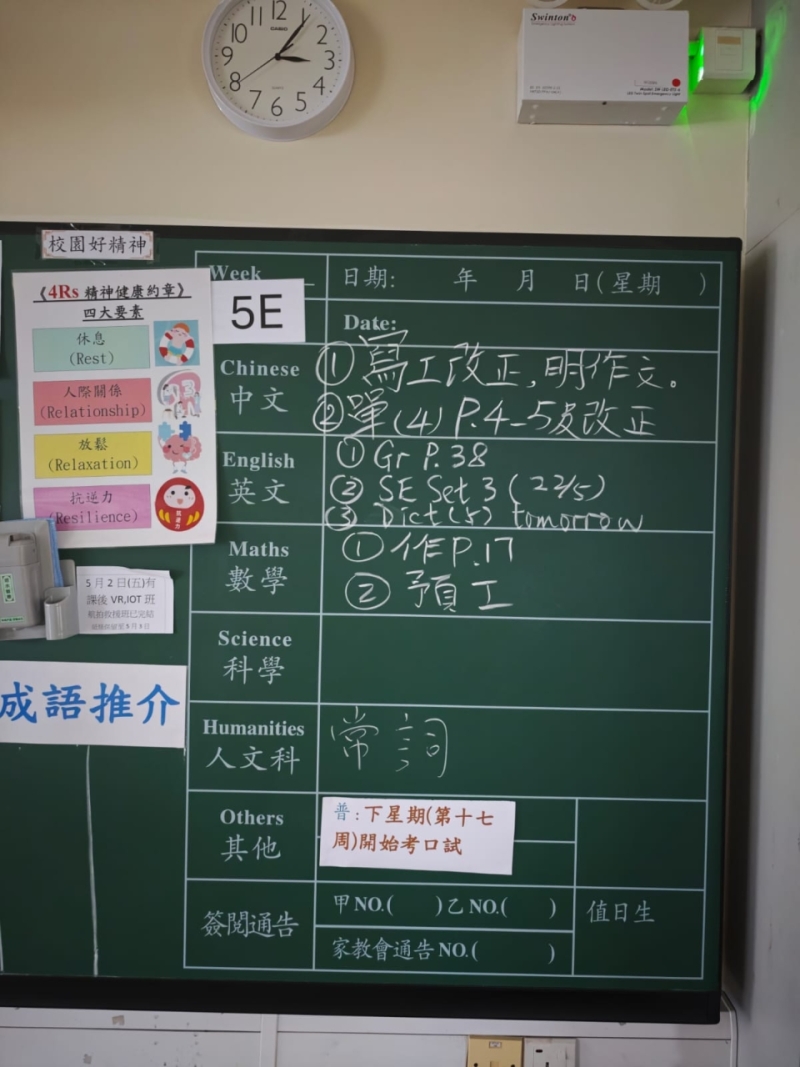 12
1
2
3
4
5
6
7
8
9
10
11
CASIO
Swinton
校園好精神
《4Rs 精神健康約章》
四大要素
休息
(Rest)
人際關係
(Relationship)
放鬆
(Relaxation)
抗逆力
(Resilience)
5月2日(五)有
課後 VR,IOT 班
成語推介
Week
5E
日期: 年 月 日(星期 )
Date:
Chinese
中文
① 寫工改正,明作文。
② 單(4) P.4-5及改正
English
英文
① Gr P.38
② SE Set 3 (22/5)
③ Dict(5) tomorrow
Maths
數學
① 作P.17
② 預工
Science
科學
Humanities
人文科
常詞
Others
其他
普:下星期(第十七
周)開始考口試
簽閱通告
甲NO.( )乙NO.( )
家教會通告NO.( )
值日生